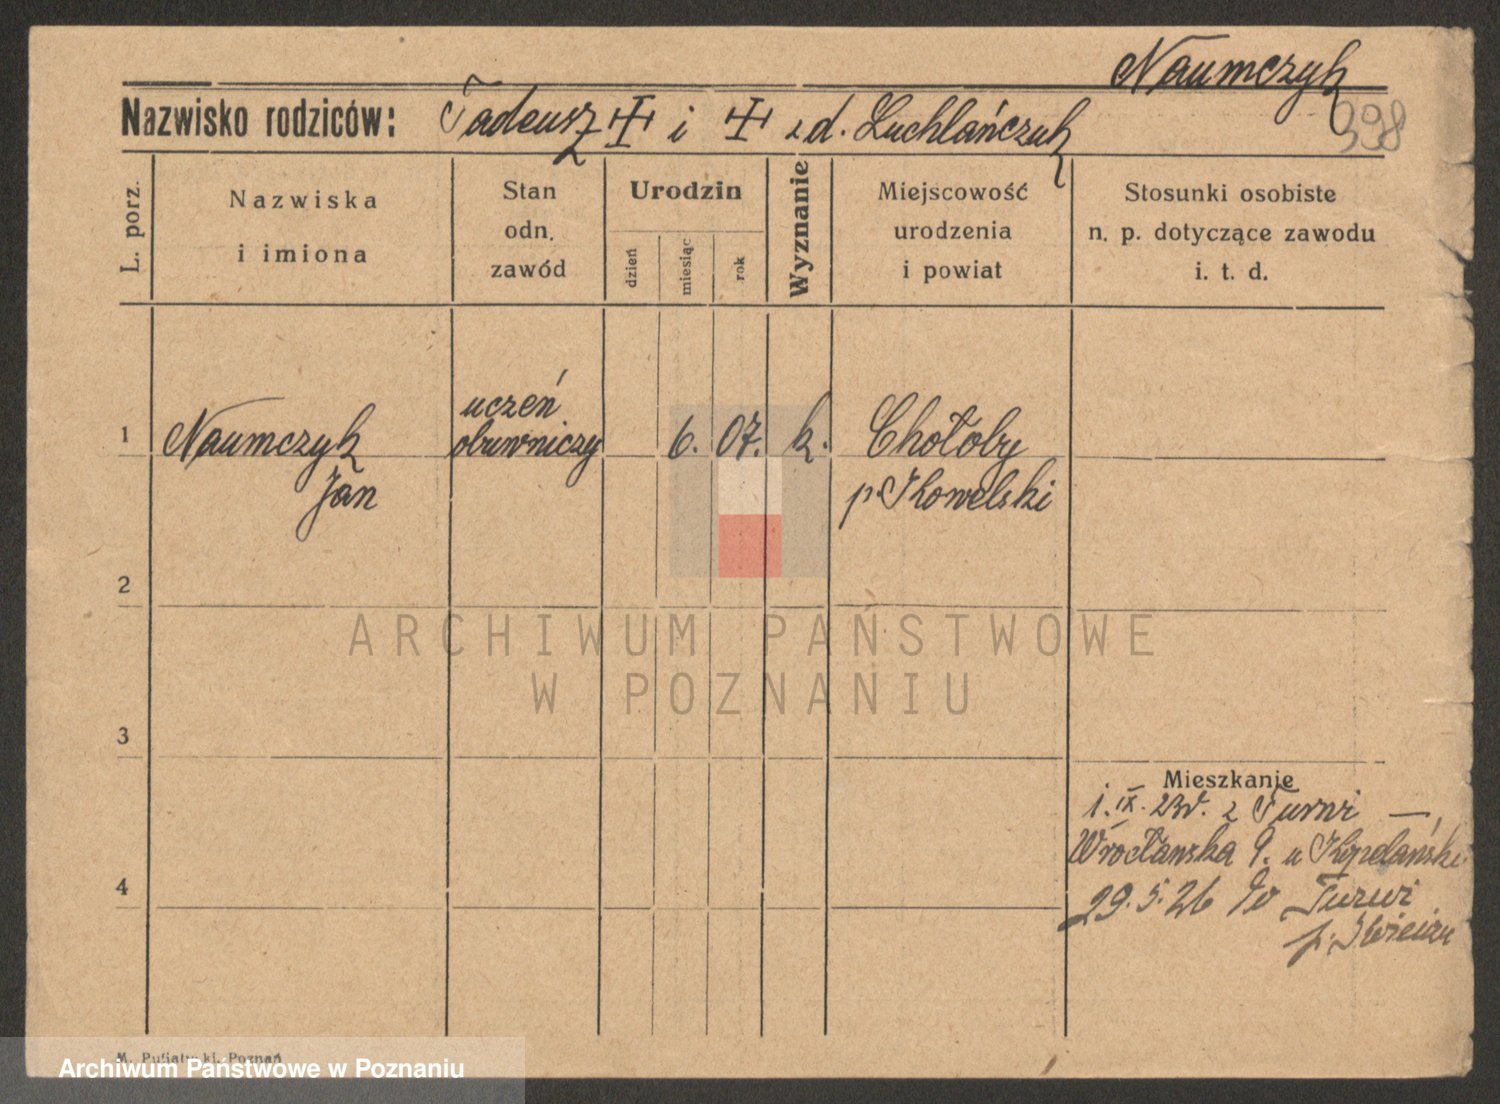 Naumczyk
Nazwisko rodziców: Tadeusz i z d. Luchlańczuk
398
L. porz.
Nazwiska
i imiona
Stan
odn.
zawód
Urodzin
dzień
miesiąc
rok
Wyznanie
Miejscowość
urodzenia
i powiat
Stosunki osobiste
n. p. dotyczące zawodu
i. t. d.
1
Naumczyk
Jan
uczeń
obuwniczy
6. 07. k.
Chołoby
p. Kowelski
2
ARCHIWUM PAŃSTWOWE
W POZNANIU
3
Mieszkanie
1. IX. 23r. z
Wrocławska 9. u
4
29. 5. 26 do
M. Pufiatycki, Poznań
Archiwum Państwowe w Poznaniu